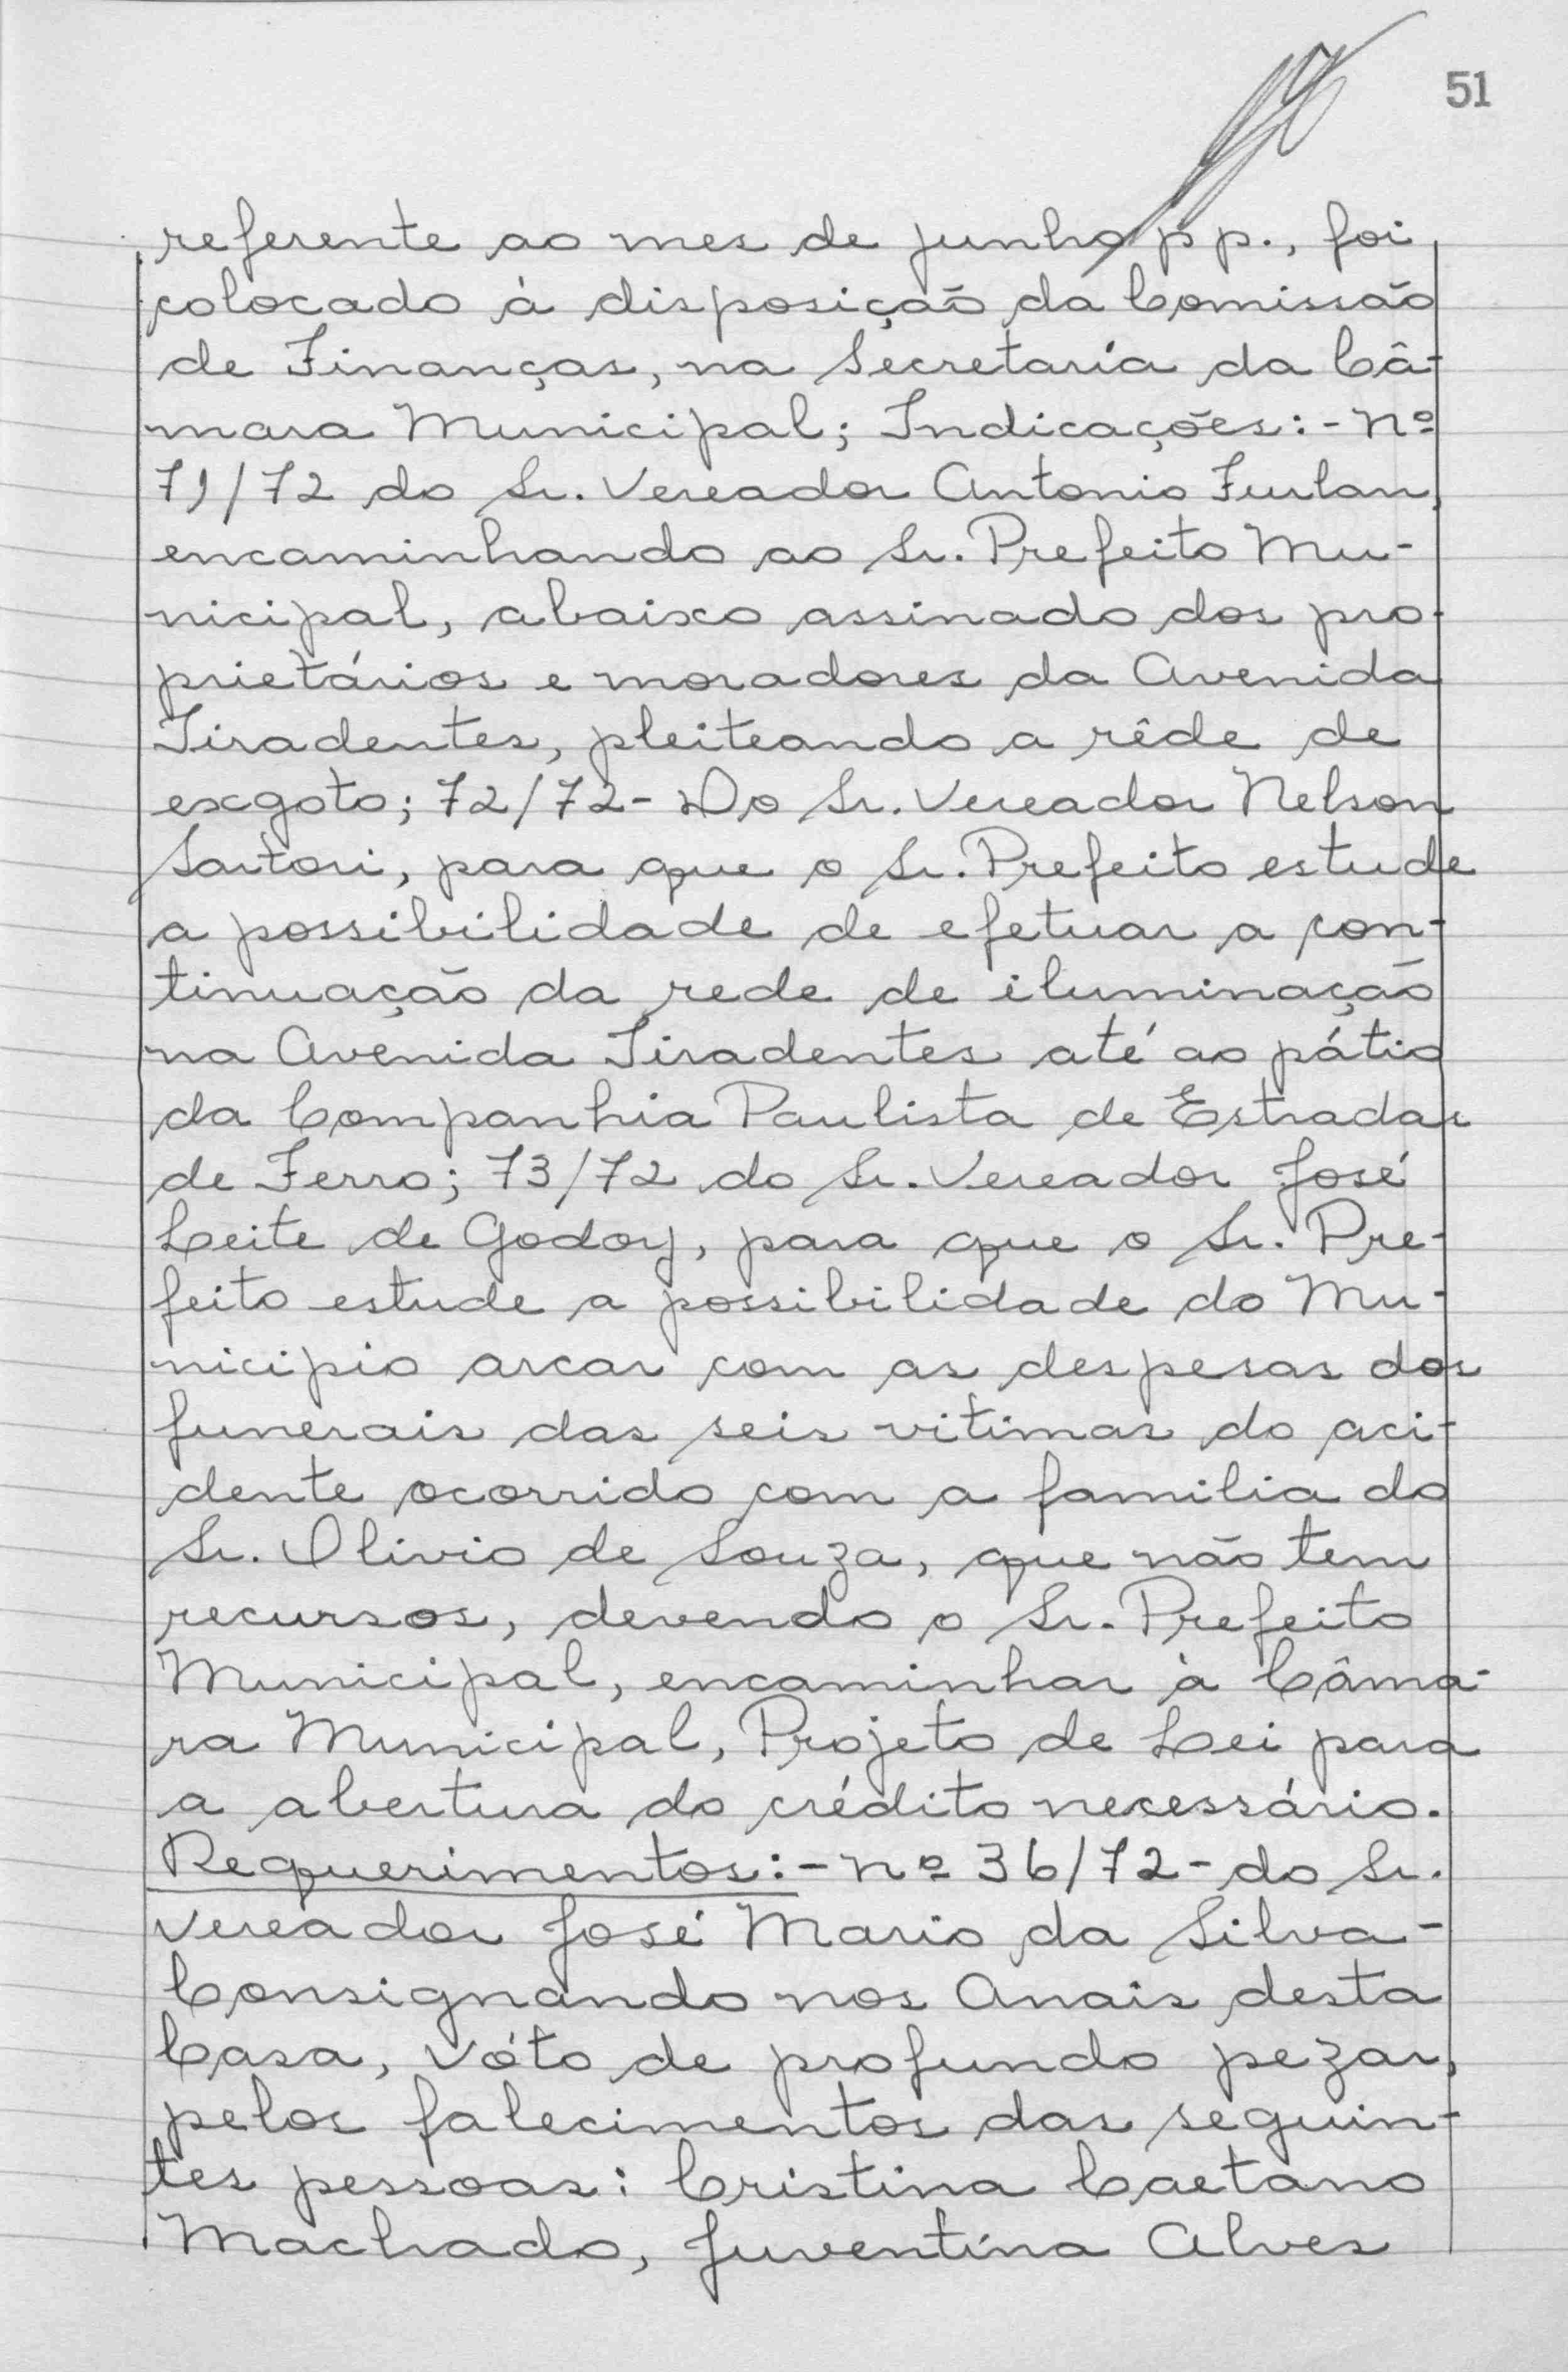 51
referente ao mes de junho p p., foi
colocado à disposição da Comissão
de Finanças, na Secretaria da Câ-
mara Municipal; Indicações:- nº
71/72 do Sr. Vereador Antonio Furlan,
encaminhando ao Sr. Prefeito Mu-
nicipal, abaixo assinado dos pro-
prietários e moradores da Avenida
Tiradentes, pleiteando a rêde de
exgoto; 72/72- Do Sr. Vereador Nelson
Sartori, para que o Sr. Prefeito estude
a possibilidade de efetuar a con-
tinuação da rede de iluminação
na Avenida Tiradentes até ao pátio
da Companhia Paulista de Estradas
de Ferro; 73/72 do Sr. Vereador José
Leite de Godoy, para que o Sr. Pre-
feito estude a possibilidade do Mu-
nicipio arcar com as despesas dos
funerais das seis vitimas do aci-
dente ocorrido com a familia do
Sr. Olivio de Souza, que não tem
recursos, devendo o Sr. Prefeito
Municipal, encaminhar à Câma-
ra Municipal, Projeto de Lei para
a abertura do crédito necessário.
Requerimentos:- nº 36/72- do Sr.
Vereador José Mario da Silva-
Consignando nos Anais desta
Casa, vóto de profundo pezar,
pelos falecimentos das seguin-
tes pessoas: Cristina Caetano
Machado, Juventina Alves